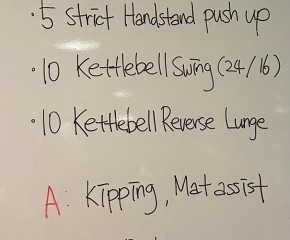 · 5 Strict Handstand push up
· 10 Kettlebell Swing (24/16)
· 10 Kettlebell Reverse Lunge
A: Kipping, Mat assist